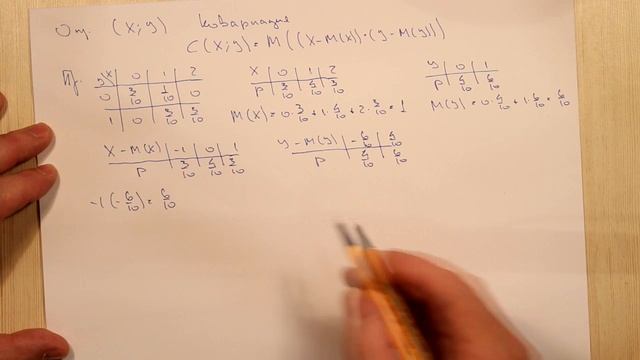 Опр. (X;Y) Ковариация
C(X;Y)=M((X-M(X))·(Y-M(Y)))
Пр.
Y\X 0 1 2
0 3/10 1/10 0
1 0 3/10 3/10
X 0 1 2
P 3/10 4/10 3/10
M(X)=0·3/10+1·4/10+2·3/10=1
Y 0 1
P 4/10 6/10
M(Y)=0·4/10+1·6/10=6/10
X-M(X) -1 0 1
P 3/10 4/10 3/10
Y-M(Y) -6/10 4/10
P 4/10 6/10
-1·(-6/10)=6/10